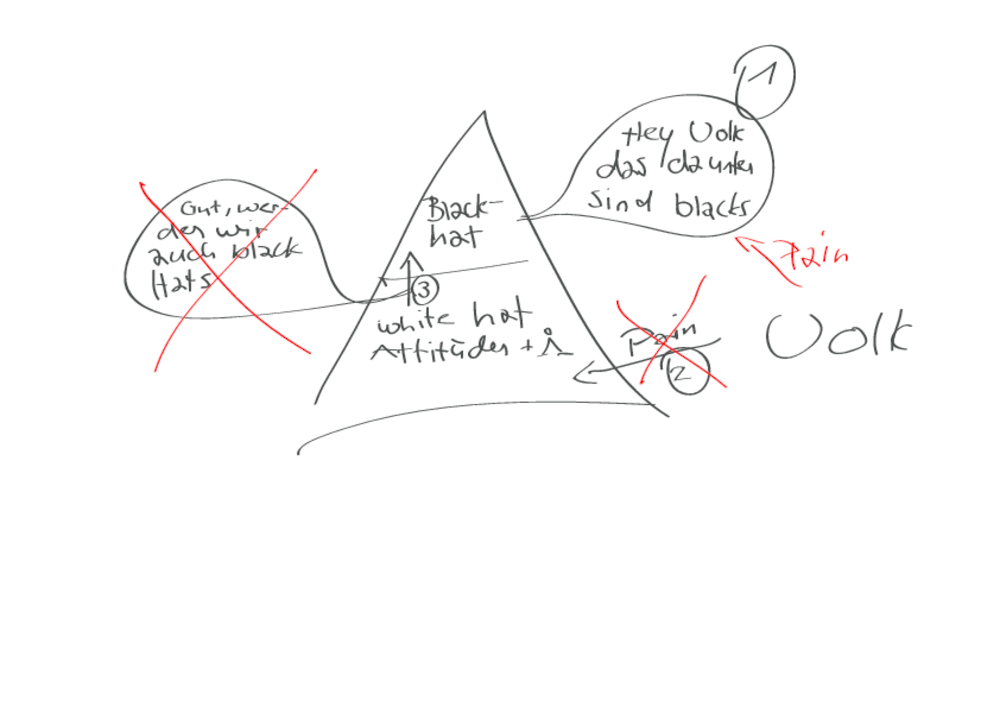 1
Hey Volk
das da unter
sind blacks
Pain
Gut, wer-
den wir
auch black
Hats
Black-
hat
3
white hat
Attitüden +
Pain
2
Volk